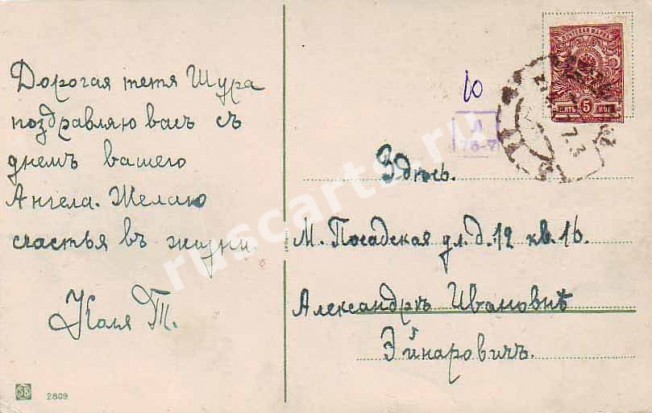 Дорогая тетя Шура
поздравляю васъ съ
днемъ вашего
Ангела. Желаю
счастья въ жизни
Коля Т.
2809
ПОЧТОВАЯ МАРКА
5
Здѣсь.
М. Посадская ул. д. 12 кв. 16.
Александрѣ Ивановнѣ
Эйнаровичъ.
ruscarts.ru